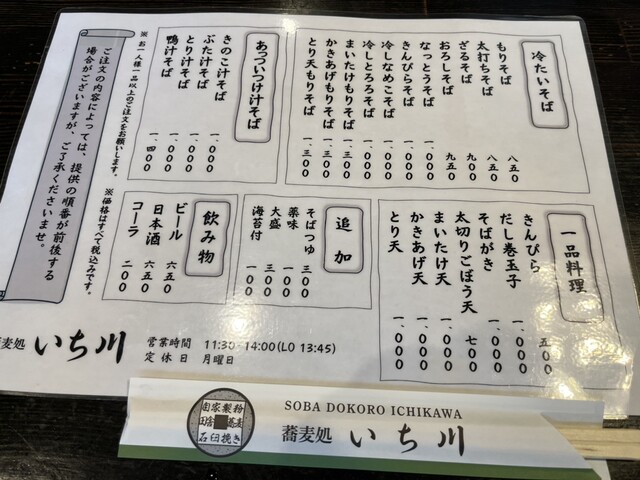 冷たいそば
もりそば 八五〇
太打ちそば 八五〇
ざるそば 九五〇
おろしそば 九五〇
なっとうそば 一、〇〇〇
きんぴらそば 一、〇〇〇
冷しなめこそば 一、〇〇〇
冷しとろろそば 一、〇〇〇
まいたけもりそば 一、三〇〇
かきあげもりそば 一、三〇〇
とり天もりそば 一、三〇〇
あっついつけ汁そば
きのこ汁そば 一、〇〇〇
ぶた汁そば 一、〇〇〇
とり汁そば 一、〇〇〇
鴨汁そば 一、四〇〇
※お一人様一品以上のご注文をお願いします。
※価格はすべて税込みです。
ご注文の内容によっては、提供の順番が前後する
場合がございますが、ご了承くださいませ。
一品料理
きんぴら 五〇〇
だし巻玉子 一、〇〇〇
そばがき 一、〇〇〇
太切りごぼう天 七〇〇
まいたけ天 一、〇〇〇
かきあげ天 一、〇〇〇
とり天 一、〇〇〇
追加
そばつゆ 三〇〇
薬味 一〇〇
大盛 三〇〇
海苔付 一〇〇
飲み物
ビール 六五〇
日本酒 六五〇
コーラ 二〇〇
蕎麦処 いち川
営業時間 11:30-14:00(LO 13:45)
定休日 月曜日
自家製粉
田舎 蕎麦
石臼挽き
SOBA DOKORO ICHIKAWA
蕎麦処 いち川